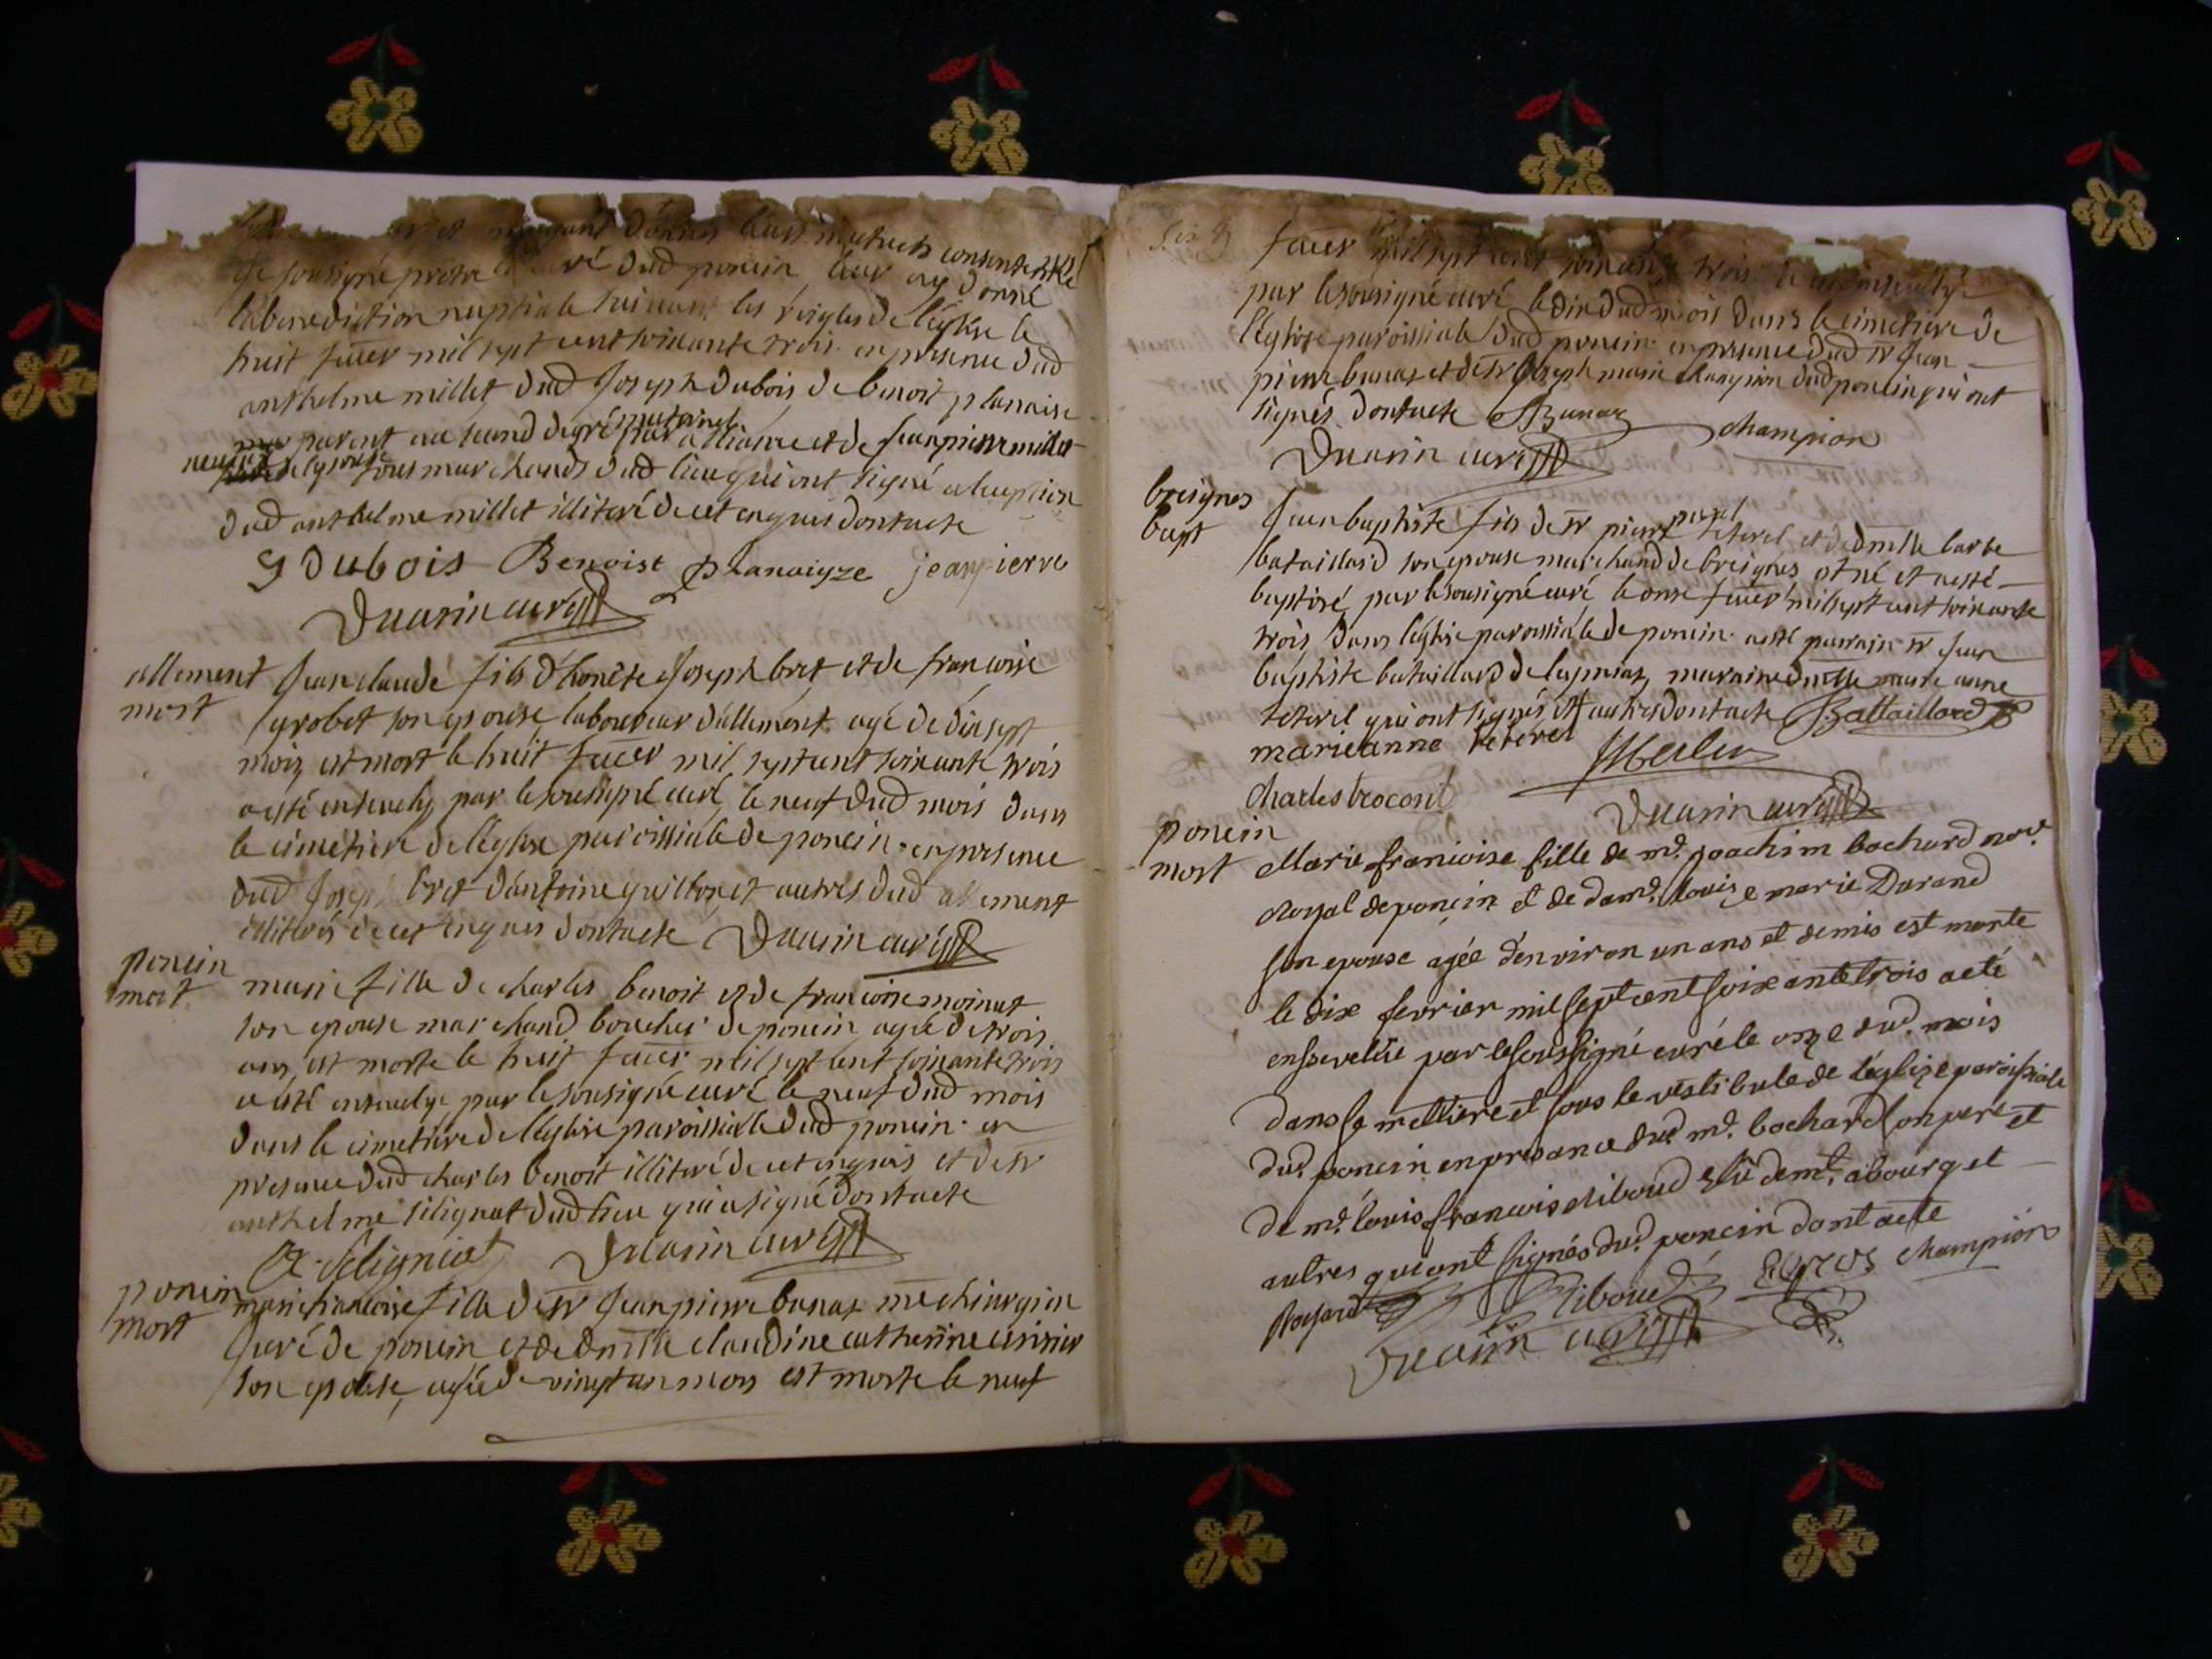 donnés leurs mutuels consentements
je soussigné prêtre curé dud poncin leur ay donné
la benediction nuptiale suivant les reigles de l'église le
huit fever mil sept cent soixante trois en presence dud
anthelme millet dud Joseph dubois de benoit planaise
parent au second degré paternel par alliance et de Jean pierre millet
neveu de lepouse tous marchands dud lieu qui ont signé a lexeption
dud anthelme millet illiteré de cet enquis dont acte
J Dubois Benoist planaigze jeanpierre
Duarin curé
allement
mort
Jean claude fils d'honete Joseph bret et de francoise
grobet son epouse laboureur dallement agé de dix sept
mois est mort le huit fever mil sept cent soixante trois
a esté ensevely par le soussigné curé le neuf dud mois dans
le cimetiere de léglise paroissiale de poncin en presence
dud Joseph bret dantoine guillon et autres dud allement
illiterés de cet enquis dont acte Duarin curé
poncin
mort
marie fille de charles benoit et de francoise moinat
son epouse marchand boucher de poncin agée de trois
ans est morte le huit fever mil sept cent soixante trois
a esté ensevelye par le sousigné curé le neuf dud mois
dans le cimetiere de léglise paroissialle dud poncin en
presence dud charles benoit illiteré de cet enquis et de sr
anthelme silignat dud lieu qui a signé dont acte
A. Seligniat Duarin curé
poncin
mort
marie francoise fille de sr Jean pierre bunaz me chirurgien
Juré de poncin et de dmlle claudine catherine cirisier
son epouse, agée de vingt un mois est morte le neuf
fever mil sept cent soixante trois a esté ensevelye
par le sousigné curé le dix dud mois dans le cimetiere de
l'eglise paroissiale dud poncin en presence dud sr Jean
pierre bunaz et de sr Joseph marie champion dud poncin qui ont
signés dont acte Bunaz champion
Duarin curé
breignes
bapt
Jean baptiste fils de sr pierre paul teterel et de dmlle barbe
bataillard son epouse marchand de breignes est né et a esté
baptisé par le sousigné curé le onse fever mil sept cent soixante
trois dans léglise paroissiale de poncin a esté parrain sr Jean
baptiste bataillard de leyniaz, marraine dmlle marie anne
teterel qui ont signés et autres dont acte Battaillard
marieanne teterel Merlin
Charles trocont
Duarin curé
poncin
mort
Marie francoise fille de me. joachim bochard nore.
Royal de poncin et de dame. louise marie Durand
son epouse agée d'environ un ans et demis est morte
le dix fevrier mil sept cent soixante trois a eté
enssevelie par le soussigné curé le onze dud. mois
dans le mettiere et sous le vestibule de l'eglize paroissiale
dud. poncin en presance dud me. bochard son pere et
de me. louis francois riboud élu demt. a bourg et
autres qui ont signés dud. poncin dont acte
Bochard Riboud champion
Duarin curé